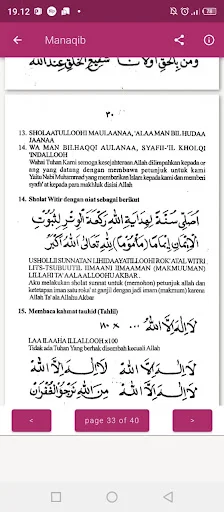 19.12
Manaqib
٣٠
13. SHOLAATULLOOHI MAULAANAA, 'ALAA MAN BIL HUDAA
JAANAA
14. WA MAN BILHAQQI AULANAA, SYAFII-'IL KHOLQI
'INDALLOOH
Wahai Tuhan Kami semoga kesejahteraan Allah dilimpahkan kepada or
ang yang datang dengan membawa petunjuk untuk kami
Yaitu Nabi Muhammad yang memberikan Islam kepada kami dan memberi
syafa'at kepada para makhluk disisi Allah
14. Sholat Witir dengan niat sebagai berikut
اُصَلِّى سُنَّةً لِهِدَايَةِ اللهِ رَكْعَةَ الْوِتْرِ لِثُبُوْتِ
الْاِيْمَانِ اِيْمَانًا (مَأْمُوْمًا) لِلّٰهِ تَعَالٰى اَللهُ اَكْبَرُ
USHOLLII SUNNATAN LIHIDAAYATILLOOHI ROK'ATAL WITRI
LITS-TSUBUUTIL IIMAANI IIMAAMAN (MAKMUUMAN)
LILLAHI TA'AALAALLOOHU AKBAR.
Aku melakukan sholat sunnat untuk (memohon) petunjuk allah dan
ketetapan iman satu roka'at ganjil dengan jadi imam (makmum) karena
Allah Ta'ala Allahu Akbar
15. Membaca kalimat tauhid (Tahlil)
لَااِلٰهَ اِلَّااللهُ ... ١٠٠×
LAA ILAAHA ILLALLOOH x100
Tidak ada Tuhan Yang berhak disembah kecuali Allah
لَااِلٰهَ اِلَّااللهُ لَااِلٰهَ اِلَّااللهُ لَااِلٰهَ اِلَّااللهُ
لَااِلٰهَ اِلَّااللهُ مِنَ اللهِ نَرْجُوالْغُفْرَانَ
<
page 33 of 40
>